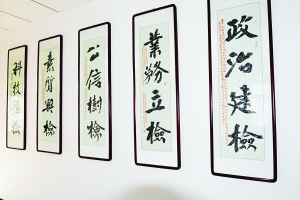 政治建檢
業務立檢
公信樹檢
素質興檢
科技强檢